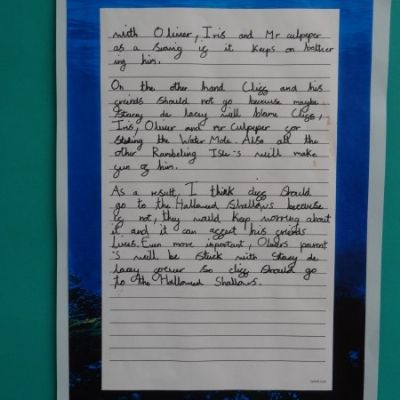 with Oliver, Iris and Mr culpeper
as a saving if it keeps on bother
ing him.
On the other hand Cligg and his
greinds should not go because maybe
Stacey de lacey will blame Cligg,
Iris, Oliver and mr Culpeper gor
stealing the Water Mole. Also all the
other Rambeling Isle's will make
gun og him.
As a result, I think cligg should
go to the Hallowed Shallows because
ig not, they would keep worring about
it and it can aggect his greinds
lives. Even more important, Olivers parent
's will be stuck with Stacey de
lacey gorever so cligg should go
to the Hallowed Shallows.